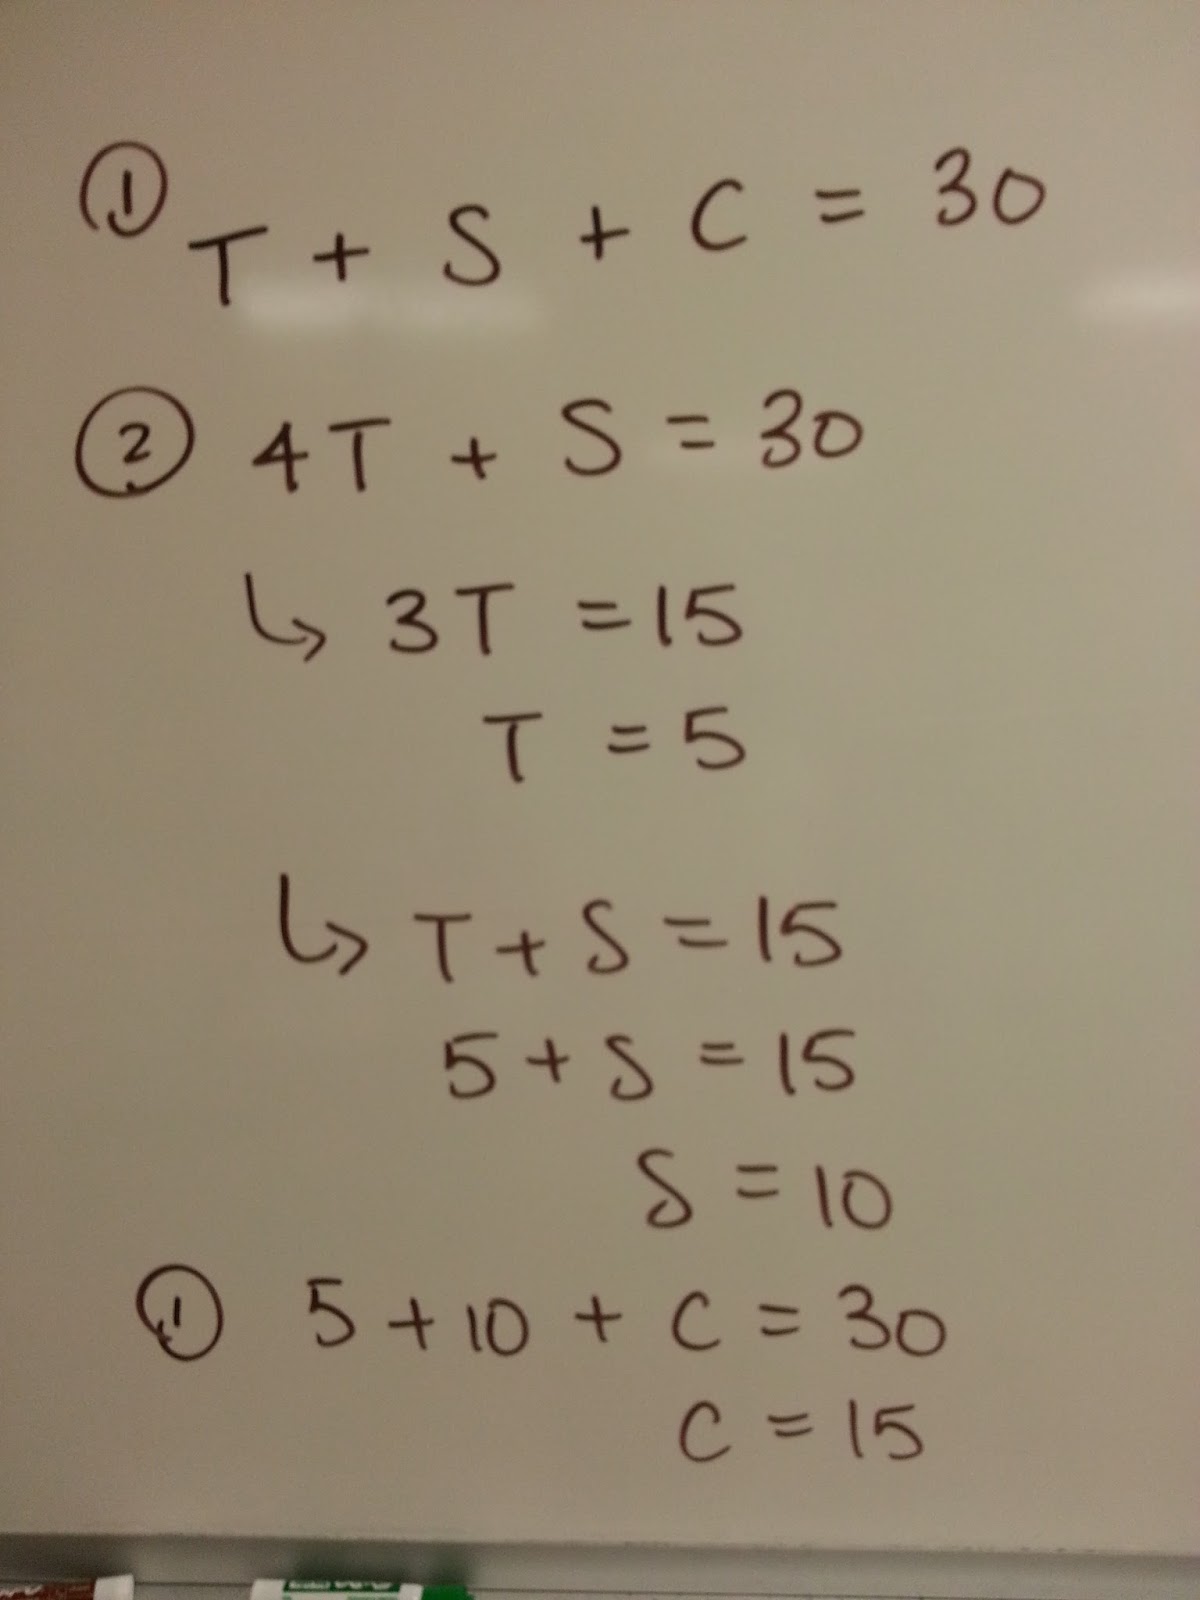 ① T + S + C = 30
② 4T + S = 30
↳ 3T = 15
T = 5
↳ T + S = 15
5 + S = 15
S = 10
① 5 + 10 + C = 30
C = 15